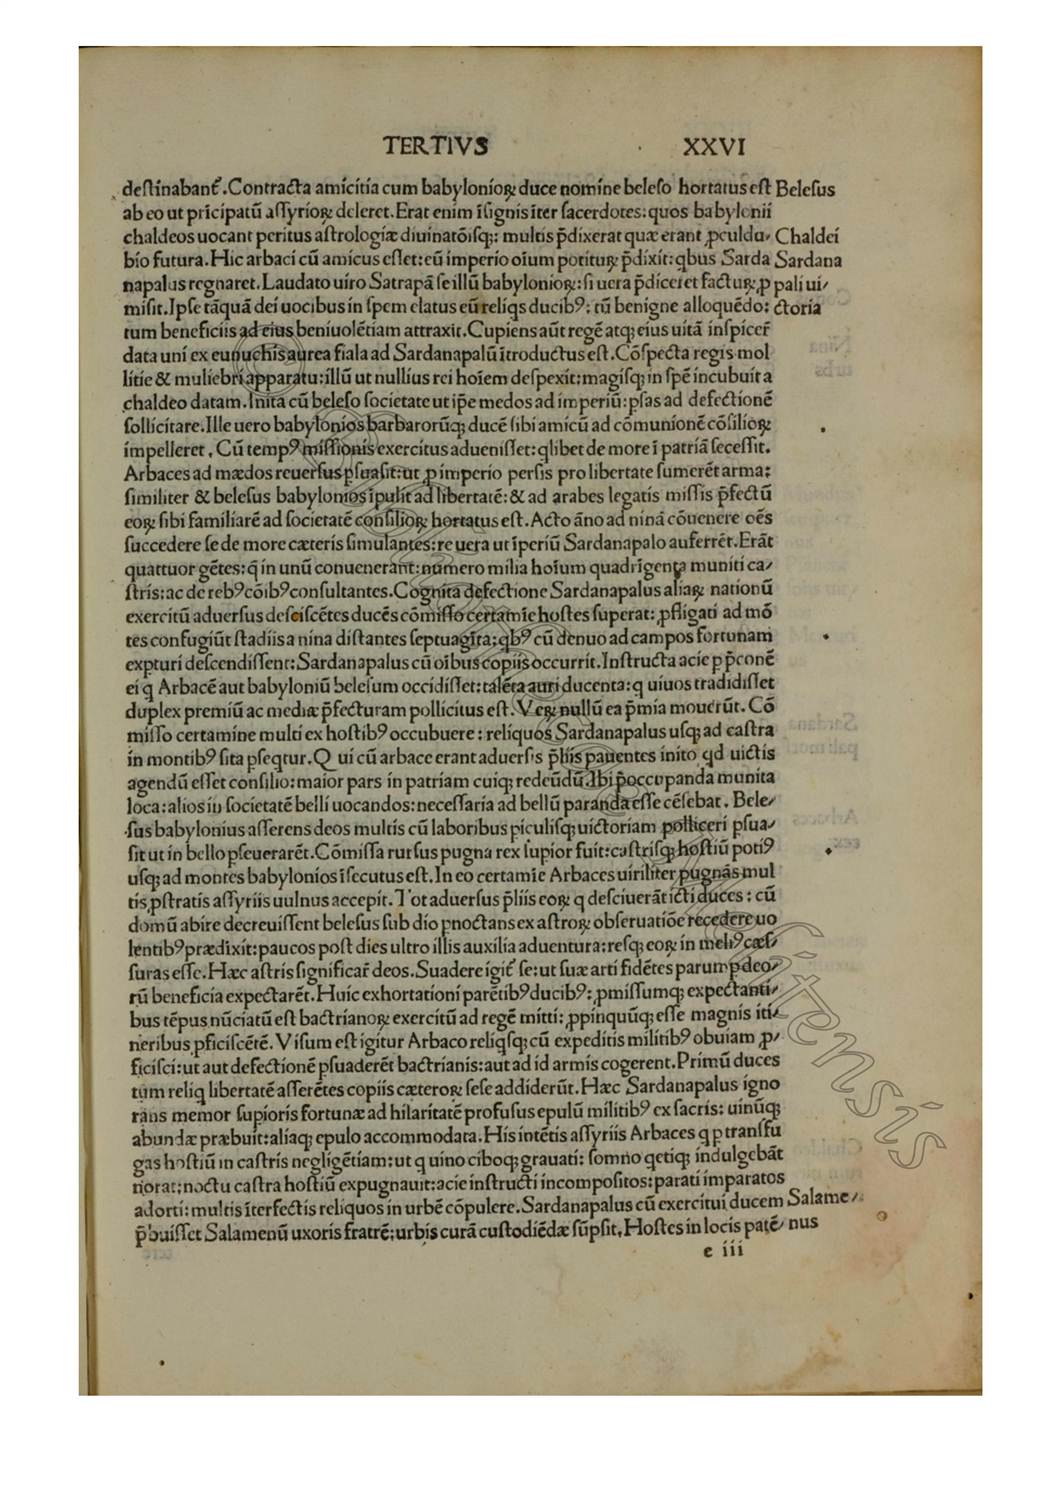 TERTIVS XXVI
deſtinabant᷑.Contracta amicitia cum babylonioꝝ duce nomine beleſo hortatus eſt Beleſus
ab eo ut pricipatū aſſyrioꝝ deleret.Erat enim īſignis iter ſacerdotes:quos babylonii
chaldeos uocant peritus aſtrologiæ diuinatōiſqꝫ: multis p̄dixerat quæ erant ꝓculdu⸗ Chaldei
bio futura.Hic arbaci cū amicus eſſet:eū imperio oīum potituꝝ p̄dixit:qbus Sarda Sardana
napalus regnaret.Laudato uiro Satrapā ſe illū babylonioꝝ:ſi uera p̄diceret factuꝝ,ꝓ pali ui⸗
miſit.Ipſe tāquā dei uocibus in ſpem elatus eū reliqs ducibꝰ: tū benigne alloquēdo: ctoria
tum beneficiis ad eius beniuolētiam attraxit.Cupiens aūt regē atqꝫ eius uitā inſpicer̄
data uni ex eunuchis aurea fiala ad Sardanapalū ītroductus eſt.Cōſpecta regis mol
litie & muliebri apparatu:illū ut nullius rei hoīem deſpexit:magiſqꝫ in ſpē incubuit a
chaldeo datam.Inita cū beleſo ſocietate ut ip̄e medos ad imperiū:pſas ad defectionē
ſollicitare.Ille uero babylonios barbarorūqꝫ ducē ſibi amicū ad cōmunionē cōſilioꝝ
impelleret.Cū tempꝰ miſſionis exercitus adueniſſet:qlibet de more ī patriā ſeceſſit.
Arbaces ad mædos reuerſus ꝑſuaſit:ut ꝓ imperio perſis pro libertate ſumerēt arma:
ſimiliter & beleſus babylonios īpulit ad libertatē:& ad arabes legatis miſſis p̄fectū
eoꝝ ſibi familiarē ad ſocietatē conſilioꝝ hortatus eſt.Acto āno ad ninā cōuenere oēs
ſuccedere ſe de more cæteris ſimulantes:re uera ut īperiū Sardanapalo auferrēt.Erāt
quattuor gētes:q̄ in unū conuenerant:numero milia hoīum quadrigenta muniti ca⸗
ſtris:ac de rebꝰ cōibꝰ conſultantes.Cognita defectione Sardanapalus aliaꝝ nationū
exercitū aduerſus deſciſcētes ducēs cōmiſſo certamīe hoſtes ſuperat:ꝓfligati ad mō
tes confugiūt ſtadiis a nina diſtantes ſeptuagīta:qbꝰ cū denuo ad campos fortunam
expturi deſcendiſſent:Sardanapalus cū oībus copiis occurrit.Inſtructa acie p p̄conē
ei q Arbacē aut babyloniū beleſum occidiſſet:talēta auri ducenta:q uiuos tradidiſſet
duplex premiū ac mediæ p̄fecturam pollicitus eſt.Veꝝ nullū ea p̄mia mouerūt.Cō
miſſo certamine multi ex hoſtibꝰ occubuere: reliquos Sardanapalus uſqꝫ ad caſtra
in montibꝰ ſita pſeqtur.Q ui cū arbace erant aduerſis p̄liis pauentes inito qd uictis
agendū eſſet conſilio:maior pars in patriam cuiqꝫ redeūdū.Ibi p̄occupanda munita
loca:alios in ſocietatē belli uocandos:neceſſaria ad bellū paranda eſſe cēſebat. Bele⸗
ſus babylonius aſſerens deos multis cū laboribus piculiſqꝫ uictoriam polliceri pſua⸗
ſit ut in bello pſeuerarēt.Cōmiſſa rurſus pugna rex ſupior fuit:caſtriſqꝫ hoſtiū potiꝰ
uſqꝫ ad montes babylonios īſecutus eſt.In eo certamīe Arbaces uiriliter pugnās mul
tis ꝓſtratis aſſyriis uulnus accepit.Tot aduerſus p̄liis eoꝝ q deſciuerāt icti duces: cū
domū abire decreuiſſent beleſus ſub dio pnoctans ex aſtroꝝ obſeruatiōe recedere uo
lentibꝰ prædixit:paucos poſt dies ultro illis auxilia aduentura:reſqꝫ eoꝝ in meliꝰ cæſ⸗
ſuras eſſe.Hæc aſtris ſignificar̄ deos.Suadere igit᷑ ſe:ut ſuæ arti fidētes parump deo⸗
rū beneficia expectarēt.Huic exhortationi parētibꝰ ducibꝰ:ꝓmiſſumqꝫ expectanti⸗
bus tēpus nūciatū eſt bactrianoꝝ exercitū ad regē mitti:ꝓpinquūqꝫ eſſe magnis iti⸗
neribus ꝓficiſcētē.Viſum eſt igitur Arbaco reliqſqꝫ cū expeditis militibꝰ obuiam ꝓ⸗
ficiſci:ut aut defectionē pſuaderēt bactrianis:aut ad id armis cogerent.Primū duces
tum reliq libertatē aſſerētes copiis cæteroꝝ ſeſe addiderūt.Hæc Sardanapalus igno
rans memor ſupioris fortunæ ad hilaritatē profuſus epulū militibꝰ ex ſacris: uinūqꝫ
abunde præbuit:aliaqꝫ epulo accommodata.His intētis aſſyriis Arbaces q p tranſfu
gas hoſtiū in caſtris negligētiam:ut q uino ciboqꝫ grauati: ſomno qetiqꝫ indulgebāt
norat:noctu caſtra hoſtiū expugnauit:acie inſtructi incompoſitos:parati imparatos
adorti:multis īterfectis reliquos in urbē cōpulere.Sardanapalus cū exercitui ducem Salame⸗
p̄buiſſet Salamenū uxoris fratrē:urbis curā cuſtodiēdæ ſūpſit.Hoſtes in locis patē⸗ nus
e iii